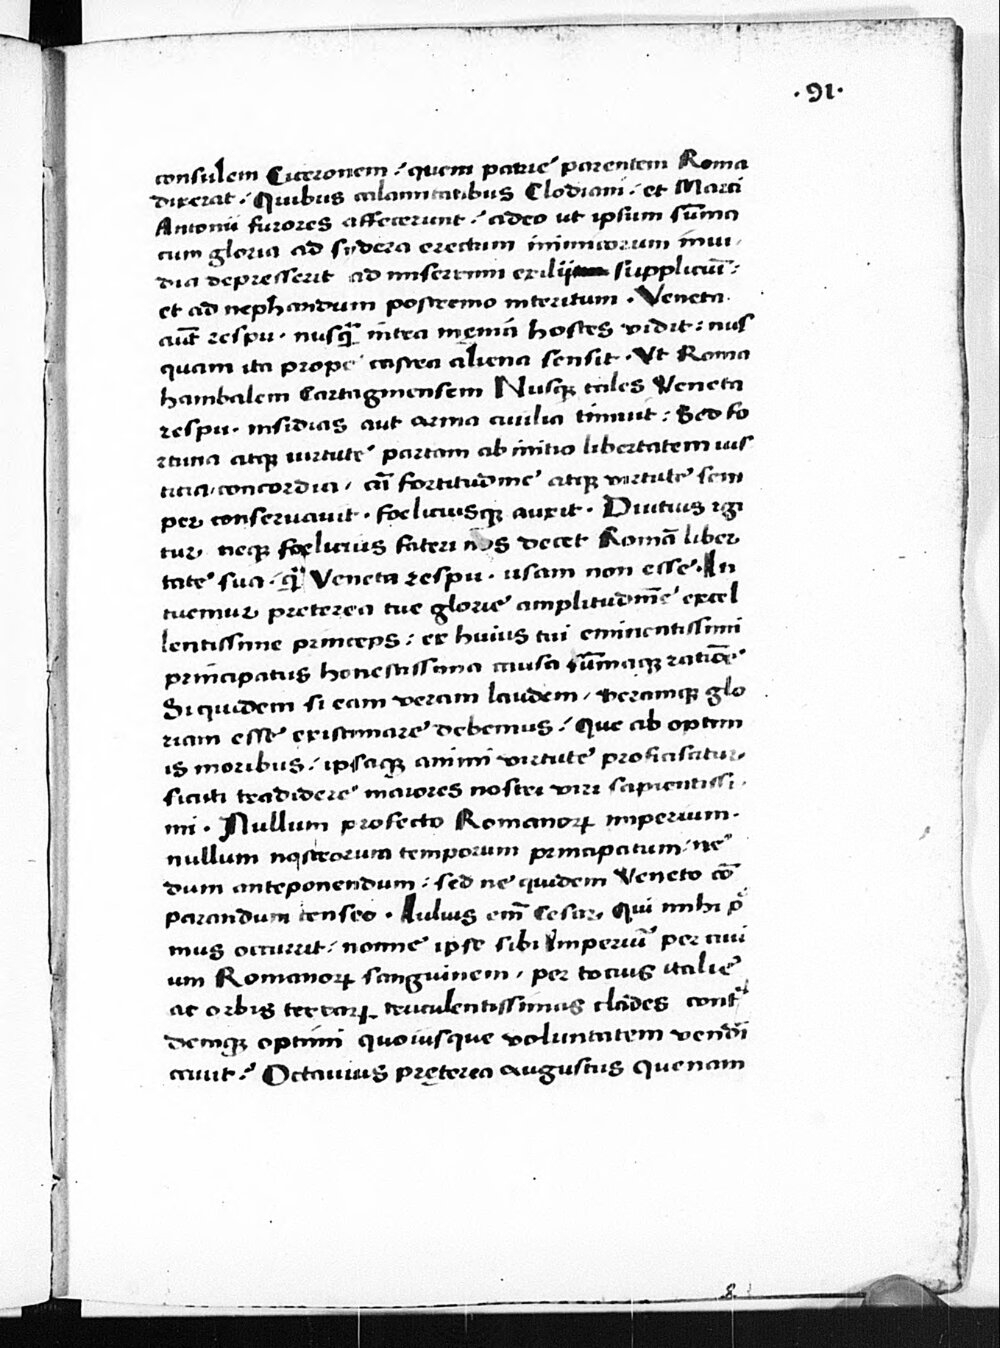 ·91·
consulem Ciceronem / quem patrie parentem Roma
dixerat / Quibus calamitatibus Clodiani / et Marci
Antonii furores affecerunt / adeo ut ipsum sūma
cum gloria ad sydera erectum inimicorum inui
dia depresserit ad miserrimi exilij supplicuī:
et ad nephandum postremo interitum. Veneta
aut̄ respu. nusq̄ȝ intra menia hostes vidit: nus
quam ita prope castra aliena sensit. Vt Roma
hanibalem Cartaginensem Nusqȝ tales Veneta
respu. insidias aut arma ciuilia timuit: Sed fo
rtuna atqȝ uirtute partam ab initio libertatem ius
titia, concordia, cū fortitudine atqȝ virtute sem
per conseruauit. foeliciusqȝ auxit. Diutius igi
tur neqȝ foelicius fateri nos decet Romā liber
tate sua. q̄ȝ Veneta respu. usam non esse. In
tuemur preterea tue glorie amplitudinē excel
lentissime princeps: ex huius tui eminentissimi
principatus honestissima causa sūmaqȝ ratiōe
Siquidem si eam veram laudem, veramqȝ glo
riam esse existimare debemus / Que ab optim
is moribus / ipsaqȝ animi virtute proficiscatur
sicuti tradidere maiores nostri viri sapientissi
mi. Nullum profecto Romanorꝝ imperium
nullum nostrorum temporum principatum / ne
dum anteponendum: sed ne quidem Veneto cō
parandum censeo. Iulius em̄ Cesar, Qui mihi p̄
mus occurrit / nonne ipse sibi Imperiū per ciui
um Romanorꝝ sanguinem, per totius italie
ac orbis terrarꝝ truculentissimas clādes cont̄
demqȝ optimi quoiusque voluntatem vendi
cauit / Octauius preterea Augustus Quenam
8.